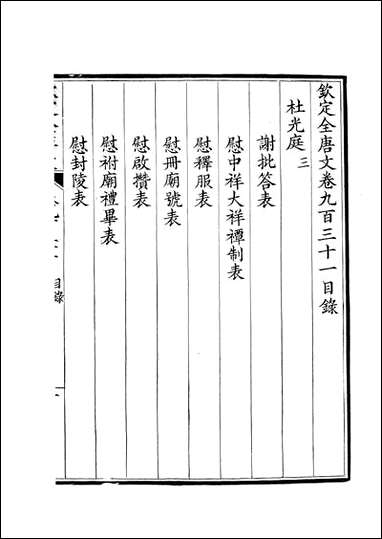 欽定全唐文卷九百三十一目錄
杜光庭 三
謝批答表
慰中祥大祥禫制表
慰釋服表
慰冊廟號表
慰啟攢表
慰祔廟禮畢表
慰封陵表
目錄